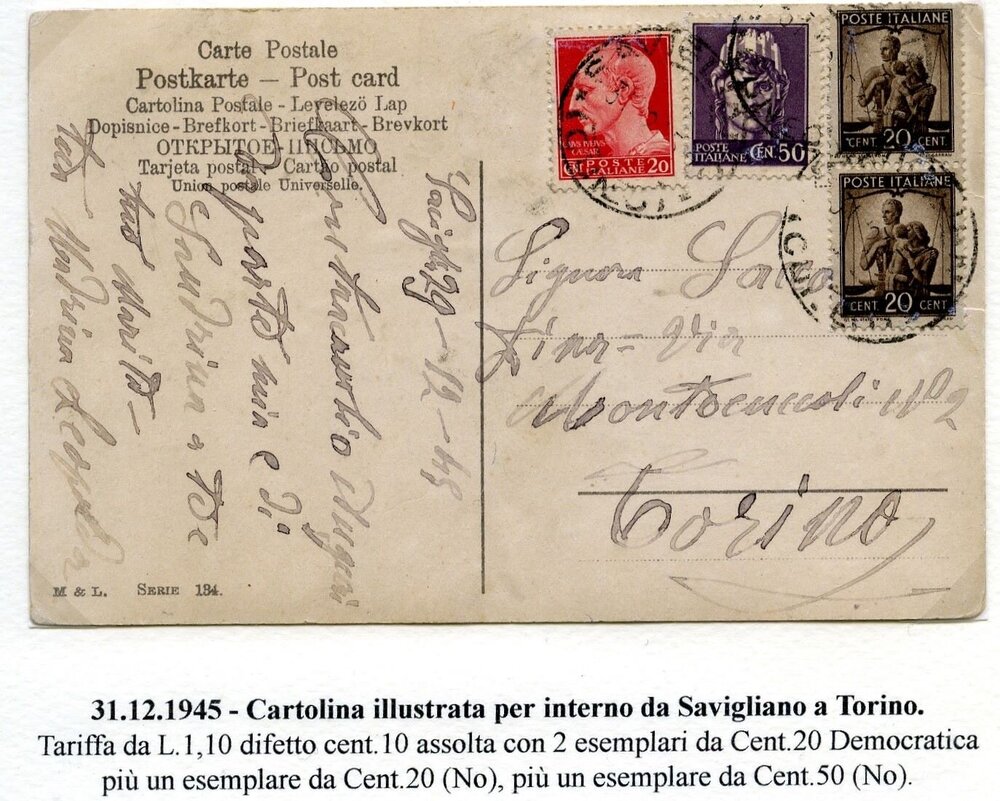 Carte Postale
Postkarte – Post card
Cartolina Postale - Levelező Lap
Dopisnice - Brefkort - Briefkaart - Brevkort
ОТКРЫТОЕ - ПИСЬМО
Tarjeta postal - Cartão postal
Union postale Universelle.
M & L. SERIE 184.
29-12-45
Auguri
mia e di
Sandrina
marito -
Madrina
CAIVS IVLIVS
CAESAR
POSTE
ITALIANE 20
POSTE
ITALIANE CEN. 50
POSTE ITALIANE
CENT. 20 CENT.
POSTE ITALIANE
CENT. 20 CENT.
Signora Sacco
Lina = Via
Montecuccoli No 2
Torino
31.12.1945 - Cartolina illustrata per interno da Savigliano a Torino.
Tariffa da L.1,10 difetto cent.10 assolta con 2 esemplari da Cent.20 Democratica
più un esemplare da Cent.20 (No), più un esemplare da Cent.50 (No).